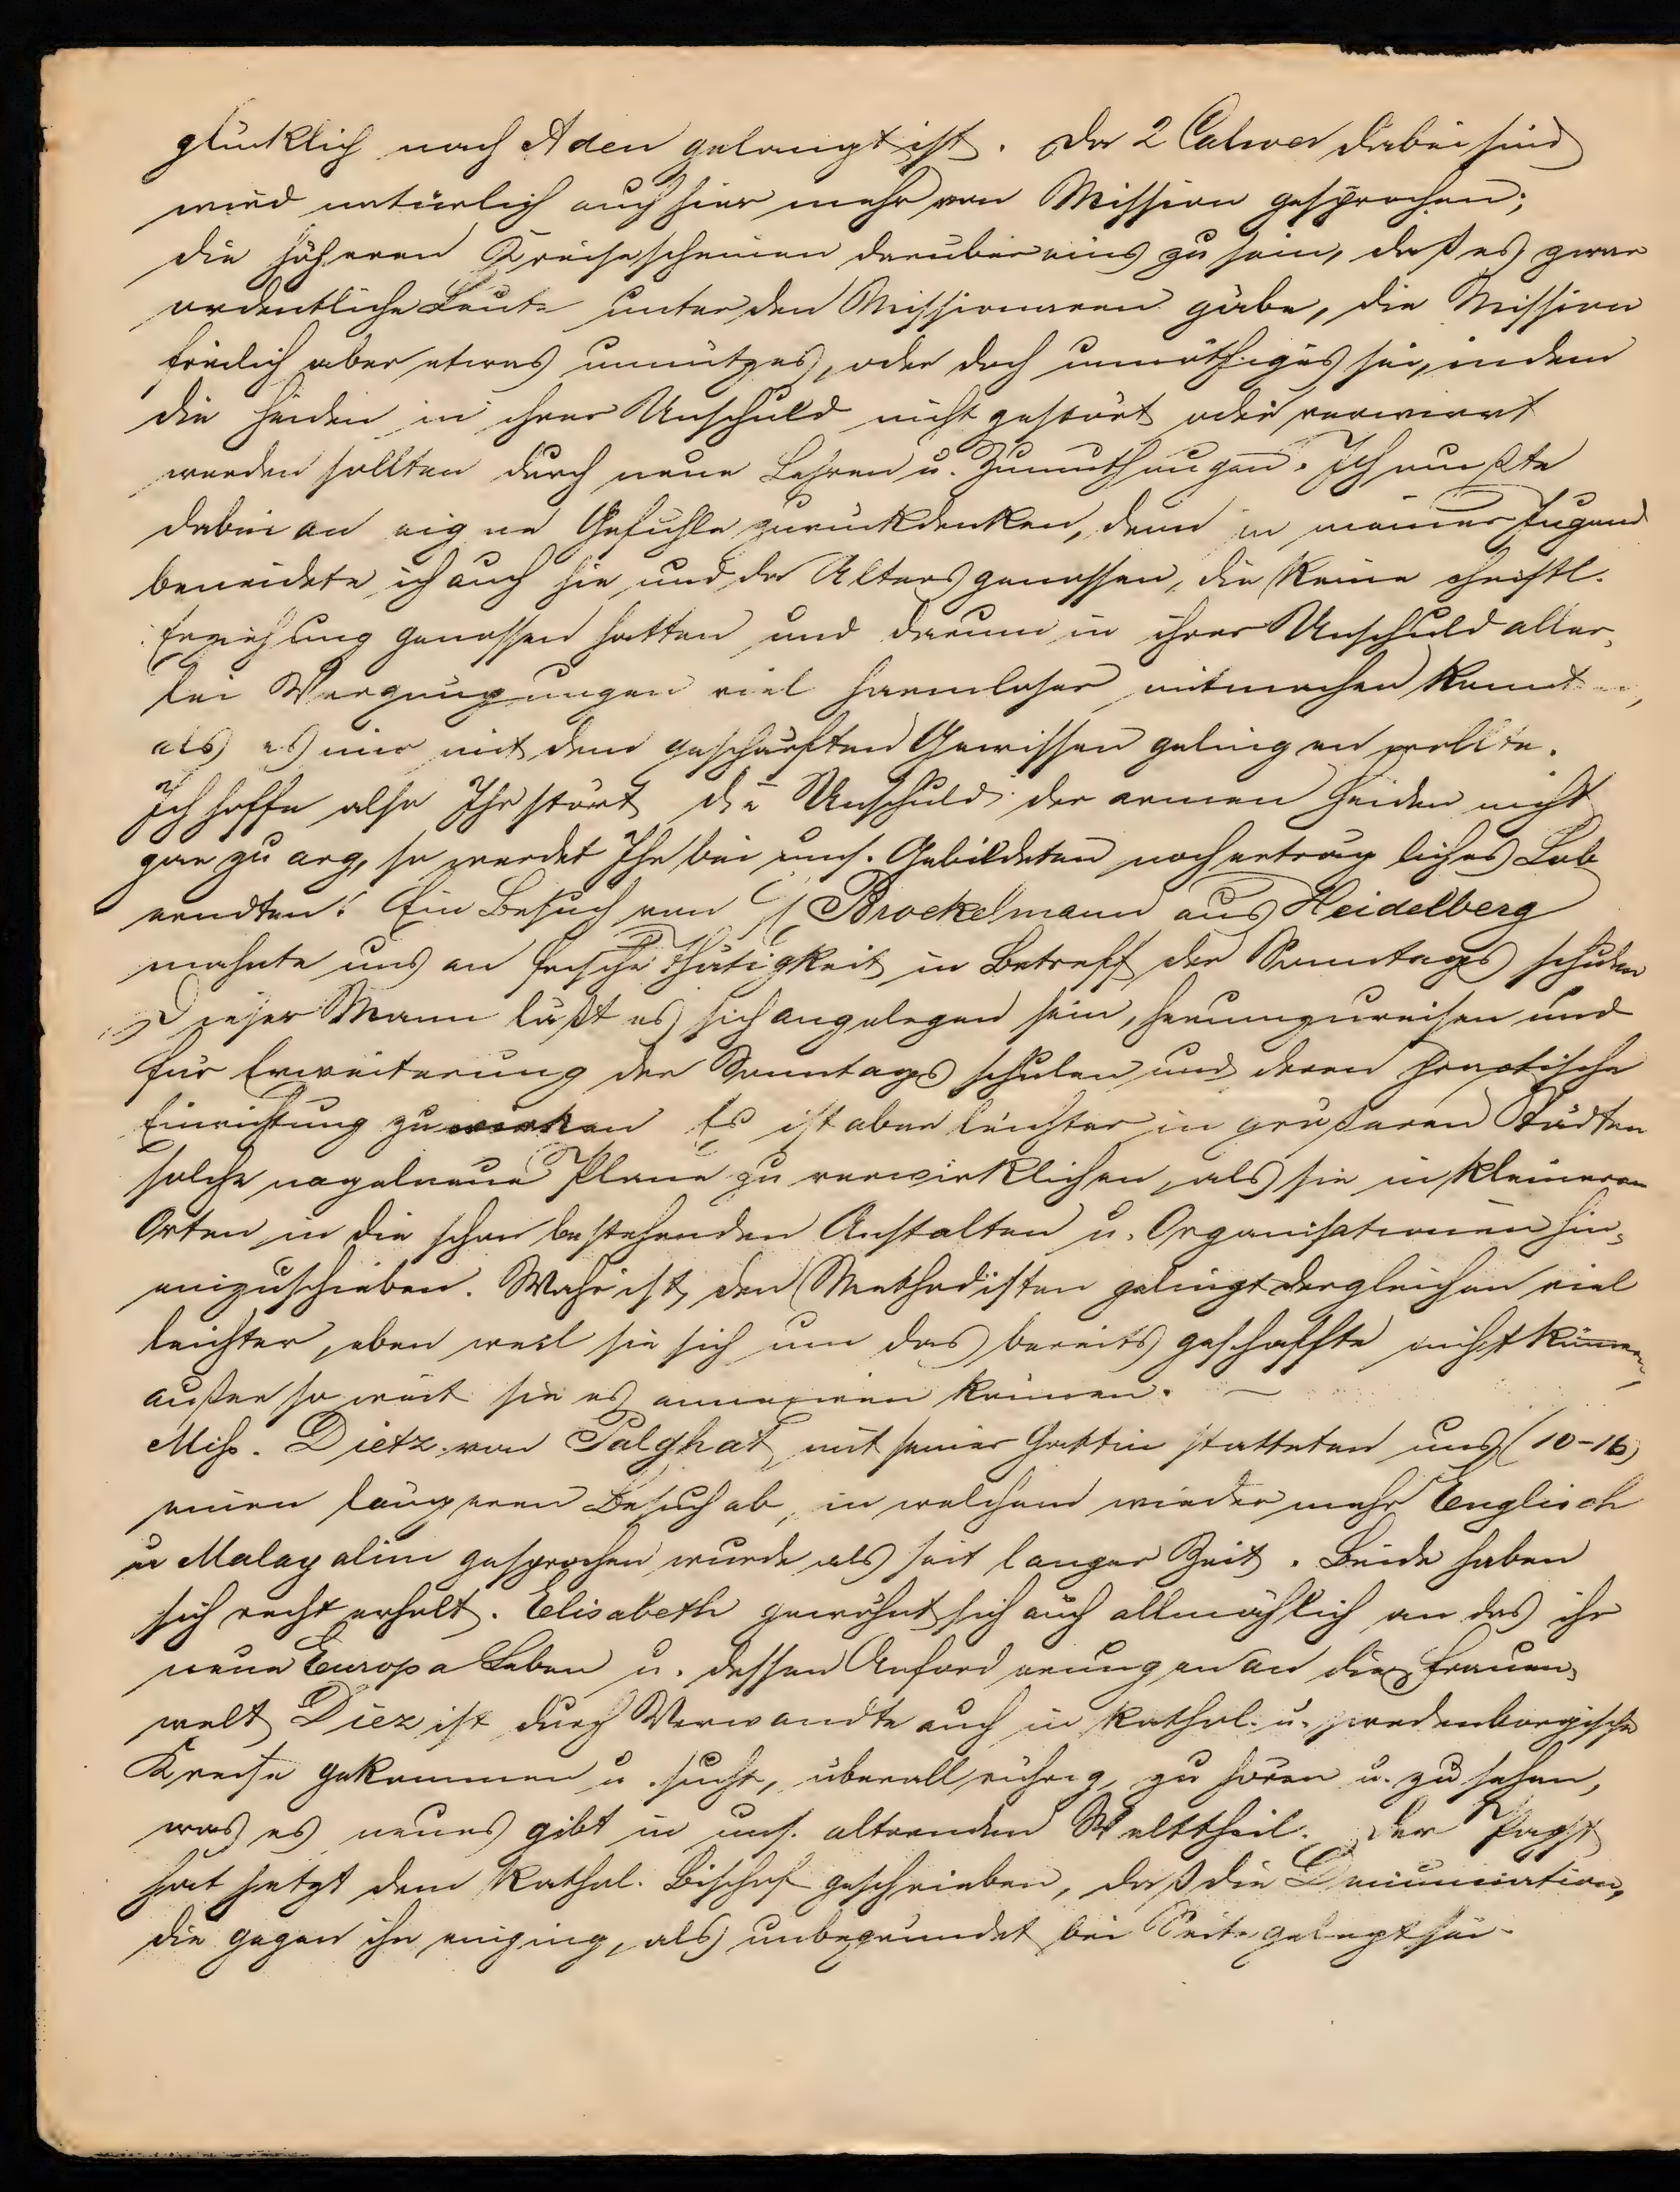 glücklich nach Aden gelangt ist. Da 2 Calwer dabei sind
wird natürlich auch hier mehr von Mission gesprochen;
die höheren Kreise scheinen darüber eins zu sein, daß es zwar
ordentliche Leute unter den Missionaren gäbe, die Mission
freilich aber etwas unnützes, oder doch unnöthiges sei, indem
die Heiden in ihrer Unschuld nicht gestört oder verwirrt
werden sollten durch neue Lehren u. Zumuthungen. Ich mußte
dabei an eigne Gefühle zurückdenken, denn in meiner Jugend
beneidete ich auch hie und da Altersgenossen, die keine christl.
Erziehung genossen hatten und darum in ihrer Unschuld aller-
lei Vergnügungen viel harmloser mitmachen konnten,
als es mir mit dem geschärften Gewissen gelingen wollte.
Ich hoffe also Ihr stört die Unschuld der armen Heiden nicht
gar zu arg, so werdet Ihr bei uns. Gebildeten noch erträgliches Lob
erndten! Ein Besuch von Brockelmann aus Heidelberg
mahnte uns an frische Thätigkeit in Betreff der Sonntagsschulen
Dieser Mann läßt es sich angelegen sein, herumzureisen und
für Erweiterung der Sonntagsschulen und deren praktische
Einrichtung zu wirken Es ist aber leichter in größeren Städten
solche nagelneue Plane zu verwirklichen, als sie in kleineren
Orten in die schon bestehenden Anstalten u. Organisationen hin-
einzuschieben. Wahr ist, den Methodisten gelingt dergleichen viel
leichter, eben weil sie sich um das bereits geschaffte nicht kümern,
außer so weit sie es annexiren können. —
Miss. Dietz von Palghat mit seiner Gattin statteten uns (10-16)
einen längeren Besuch ab, in welchem wieder mehr Englisch
u Malayalim gesprochen wurde als seit langer Zeit. Beide haben
sich recht erholt. Elisabeth gewöhnt sich auch allmählich an das ihr
neue Europa Leben u. dessen Anforderungen an die Frauen-
welt Diez ist durch Verwandte auch in kathol. u. swedenborgische
Kreise gekommen u. sucht, überall rührig, zu hören u. zu sehen,
was es neues gibt in uns. alternden Welttheil. Der Papst
hat jetzt dem kathol. Bischof geschrieben, daß die Denunciation,
die gegen ihn einging, als unbegründet bei Seite gelegt sei.